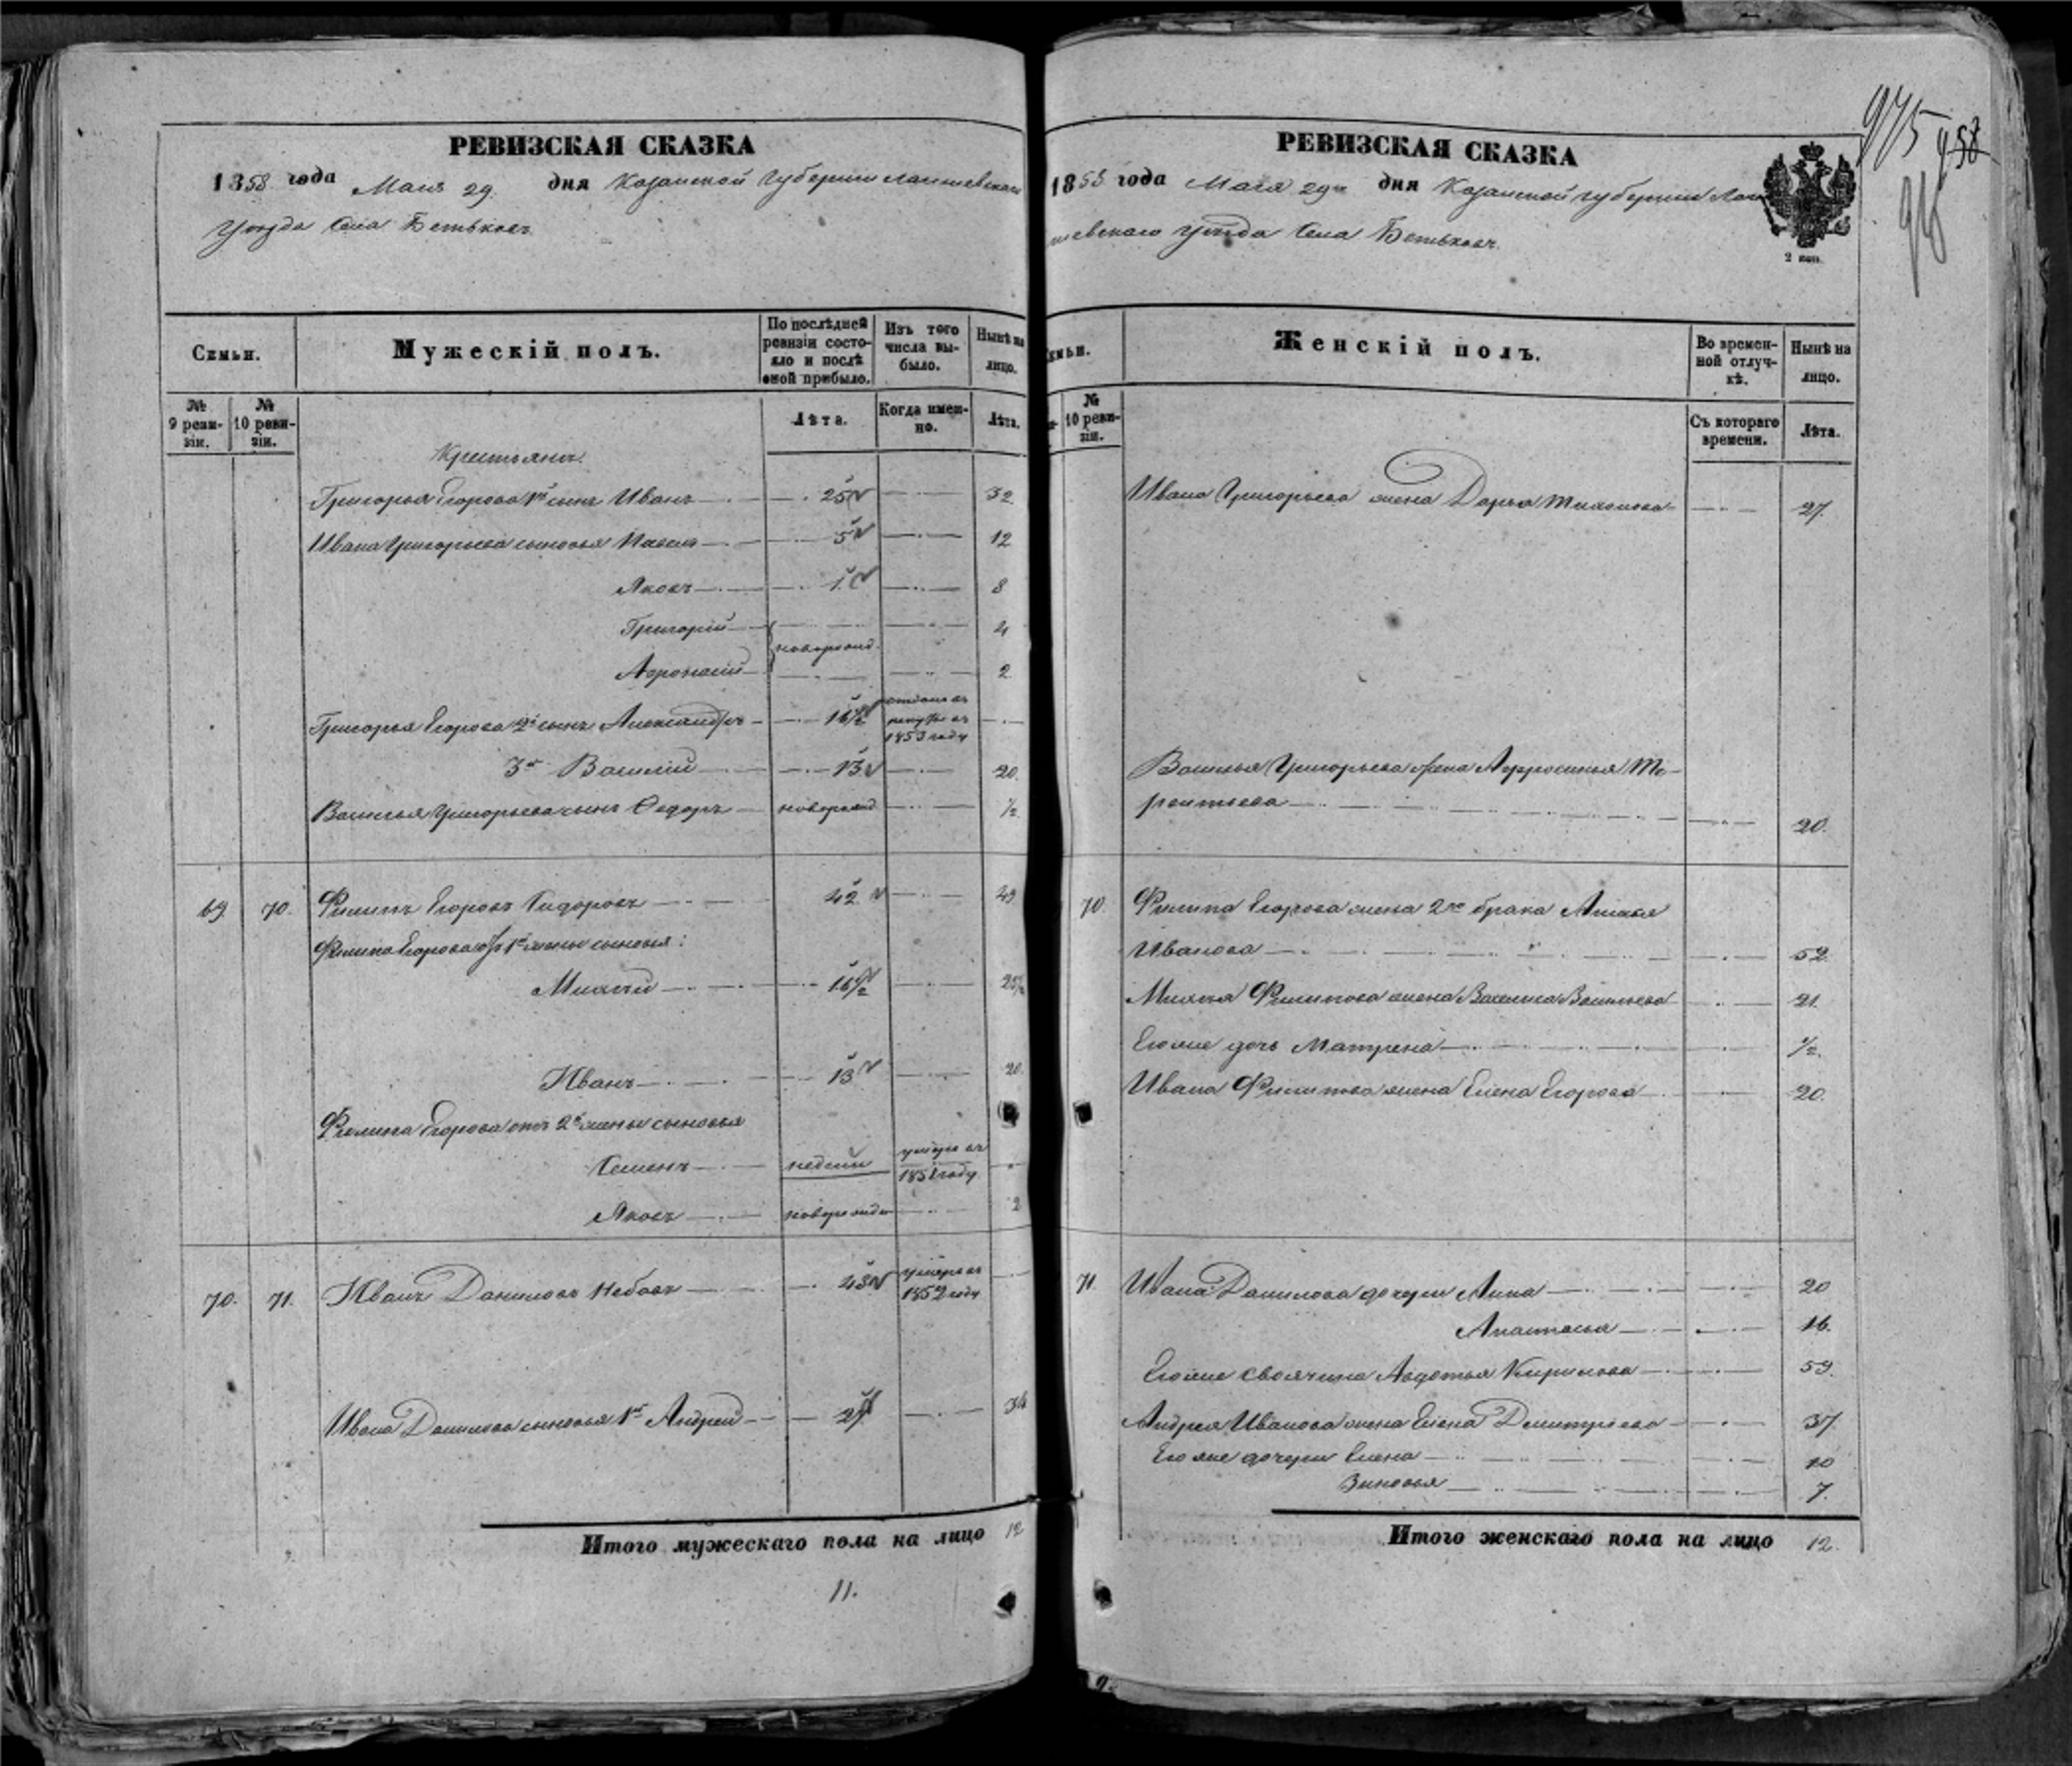 РЕВИЗСКАЯ СКАЗКА
1858 года Мая 29. дня Казанской Губернии Лаишевскаго
Уѣзда Села Бетьковъ
Семьи.
Мужескій полъ.
По послѣдней ревизіи состояло и послѣ оной прибыло.
Изъ того числа выбыло.
Нынѣ на лицо.
№ 9 ревизіи.
№ 10 ревизіи.
Лѣта.
Когда именно.
Лѣта.
Крестьянъ.
Григорья Егорова 1й сынъ Иванъ 25 32
Ивана Григорьева сыновья Павелъ 5 12
Яковъ 1 8
Григорій новорожд. 4
Афонасій 2
Григорья Егорова 2й сынъ Александръ 16½ отданъ въ рекруты въ 1853 году
3й Василій 13 20.
Василья Григорьева сынъ Федоръ новорожд ½
69 70. Филипъ Егоровъ Сидоровъ 42 49
Филипа Егорова отъ 1й жены сыновья:
Михайл 16½
Иванъ 13 20
Филипа Егорова отъ 2й жены сыновья
Семенъ недели умеръ въ 1851 году
Яковъ новорожд 2
70. 71. Иванъ Даниловъ 43 умеръ въ 1852 году
Ивана Данилова сыновья 1й Андрей 27 34
Итого мужескаго пола на лицо 12
11.
РЕВИЗСКАЯ СКАЗКА
1858 года Мая 29го дня Казанской губернии Лаи
шевскаго Уѣзда Села Бетьковъ.
2 коп.
975
958
Семьи.
Женскій полъ.
Во временной отлучкѣ.
Нынѣ на лицо.
№ 10 ревизіи.
Съ котораго времени.
Лѣта.
Ивана Григорьева жена Дарья Тихонова 27.
Василья Григорьева жена Афросинья Те-
рентьева 20.
70. Филипа Егорова жена 2го брака Анисья
Иванова 52
Михаила Филипова жена Васильева 21.
Егоже дочь Матрена ½.
Ивана Филипова жена Елена Егорова 20.
71. Ивана Данилова дочери Анна 20
Анастасья 16.
Егоже своячина Авдотья Кирилова 59.
Андрея Иванова жена Елена Дмитриева 37.
Егоже дочери Елена 10
Зиновья 7.
Итого женскаго пола на лицо 12.